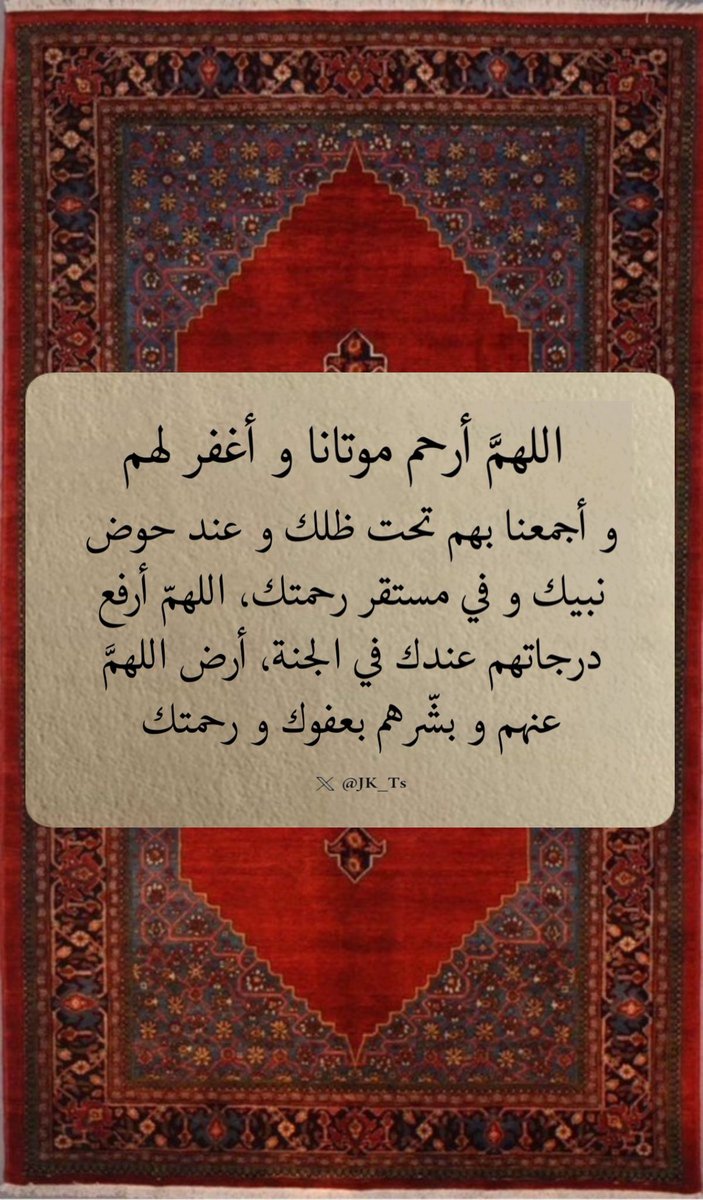 اللهمَّ أرحم موتانا و أغفر لهم
و أجمعنا بهم تحت ظلك و عند حوض
نبيك و في مستقر رحمتك، اللهمّ أرفع
درجاتهم عندك في الجنة، أرض اللهمَّ
عنهم و بشّرهم بعفوك و رحمتك
𝕏 @JK_Ts